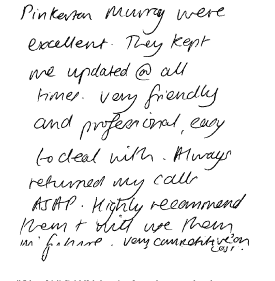 Pinkerton Murray were
excellent. They kept
me updated @ all
times. very friendly
and professional, easy
to deal with. Always
returned my calls
ASAP. Highly recommend
them + will use them
in future. very competitive on
cost.